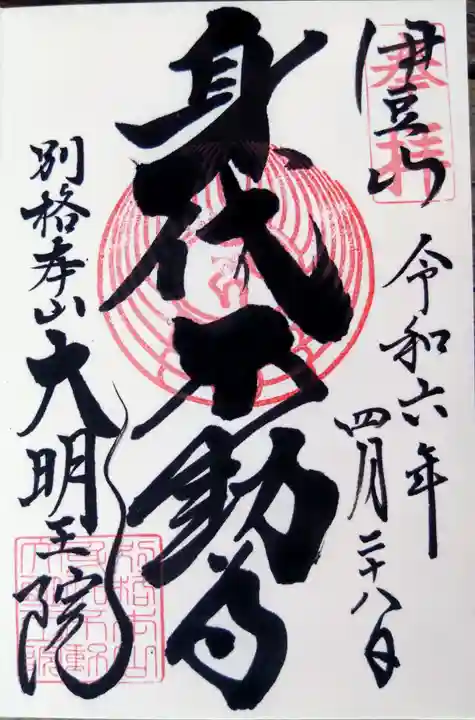 奉拝
伊豆山
令和六年
四月二十八日
身代不動尊
別格本山大明王院